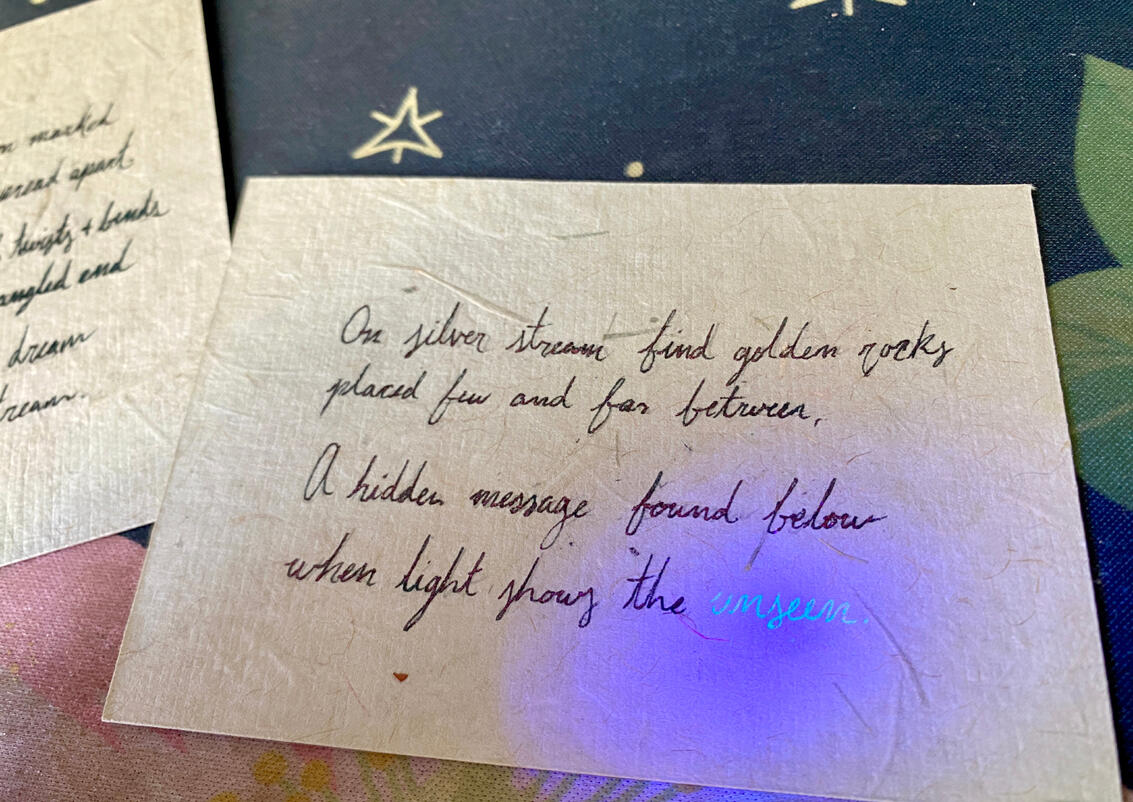 marked
apart
twists + binds
end
dream
On silver stream find golden rocks
placed few and far between,
A hidden message found below
when light shows the unseen.